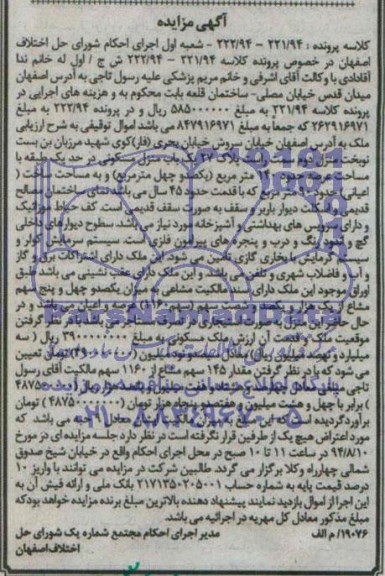 آگهی مزایده
کلاسه پرونده : ۲۲۱/۹۴ - ۲۲۲/۹۴ - شعبه اول اجرای احکام شورای حل اختلاف
اصفهان در خصوص پرونده کلاسه ۲۲۱/۹۴ - ۲۲۲/۹۴ ش ح / اول له خانم ندا
آقادادی با وکالت آقای اشرفی و خانم مریم پزشکی علیه رسول تاجی به آدرس اصفهان
میدان قدس خیابان مصلی- ساختمان قلعه بابت محکوم به و هزینه های اجرایی در
پرونده کلاسه ۲۲۱/۹۴ به مبلغ ۵۸۵۰۰۰۰۰۰ ریال و در پرونده ۲۲۲/۹۴ به مبلغ
۲۶۲۹۱۶۹۷۱ که جمعاً به مبلغ ۸۴۷۹۱۶۹۷۱ می باشد اموال توقیفی به شرح ارزیابی
ملک به آدرس اصفهان خیابان سروش خیابان بحری (فار)کوی شهید مرزبان بن بست
نوبخت منزل سمت راست پلاک ۲۷ یک باب منزل مسکونی در حد یک طبقه با
مساحت عرصه حدود متر مربع (یکصد و چهل مترمربع) و به مساحت ساخت (
اعیانی) حدود ۹۰ متر مربع که با قدمت حدود ۴۵ سال می باشد نمای ساختمان مصالح
قدیمی و به حالت دیوار باربر و سقف به صورت سقف قدیمی است. کف حیاط موزائیک
و دارای سرویس های بهداشتی و آشپزخانه مورد نیاز می باشد. سطوح دیوارهای داخلی
گچ و بدون رنگ و درب و پنجره های پیرامون فلزی است. سیستم سرمایش کولر و
سیستم گرمایش با بخاری گازی تامین می شود. این ملک دارای اشتراکات برق و گاز
و آب و فاضلاب شهری و تلفن می باشد و این ملک دارای عقب نشینی می باشد طبق
اوراق موجود این ملک دارای سند مالکیت مشاعی به میزان یکصدو چهل و پنج سهم
مشاع از یک هزار و یکصد و شصت سهم (سهم ۱۱۶۰) عرصه و اعیان می باشد و در
حال حاضر این منزل به صورت استیجاری در تصرف مستاجر می باشد با در نظر گرفتن
موقعیت ملک و قدمت آن ارزش ملک مسکونی به مبلغ ۳۹۰۰۰۰۰۰۰۰ ریال ( سه
میلیارد و نهصد میلیون ریال) معادل سیصد و نود میلیون تومان تعیین
می شود که با در نظر گرفتن مقدار ۱۴۵ سهم مشاع از ۱۱۶۰ سهم مالکیت آقای رسول
تاجی
) برابر با چهل و هشت میلیون و هفتصد و پنجاه هزار تومان (۴۸۷۵۰۰۰۰) تومان
برآورد گردیده است که
مورد اعتراض هیچ یک از طرفین قرار نگرفته است در نظر دارد جلسه مزایده ای در مورخ
۹۴/۸/۱۰ در ساعت ۱۱ تا ۱۰ صبح در محل اجرای احکام واقع در خیابان شیخ صدوق
شمالی چهارراه وکلا برگزار می گردد. طالبین شرکت در مزایده می توانند با واریز ۱۰
درصد قیمت پایه به شماره حساب ۲۱۷۱۳۵۰۲۰۵۰۰۱ بانک ملی و ارائه فیش آن به
این اجرا از اموال بازدید نمایند پیشنهاد دهنده بالاترین مبلغ برنده مزایده خواهد بود که
مبلغ مذکور معادل کل مهریه در اجرائیه می باشد.
۱۹۰۷۶/ م الف
مدیر اجرای احکام مجتمع شماره یک شورای حل
اختلاف اصفهان
ParsNamadData
۰۲۱-۸۸۳۴۹۶۷۰-۵